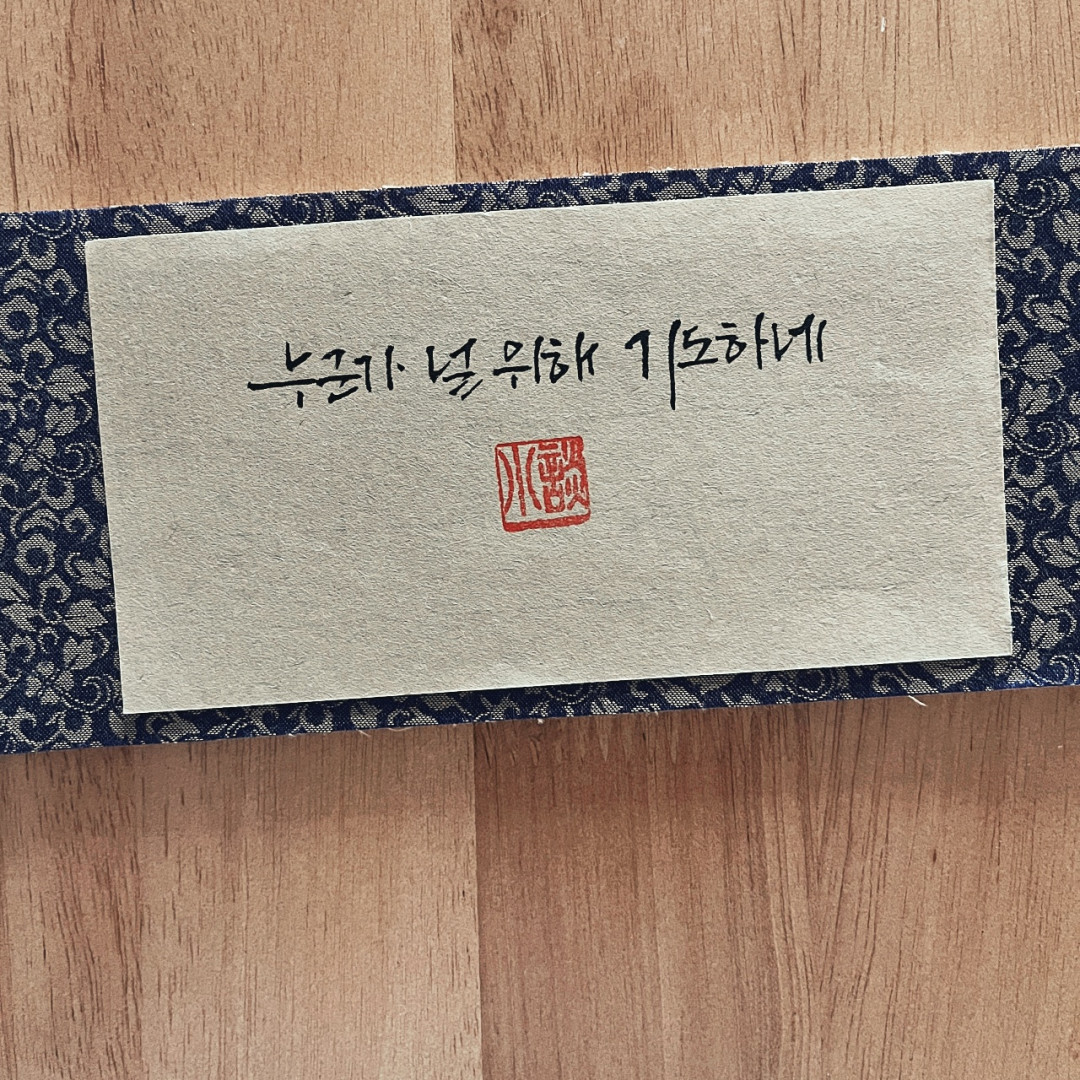 누군가 널 위해 기도하네
水談